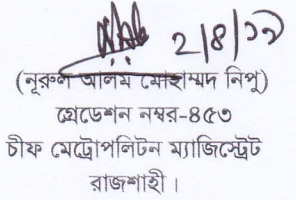 2/8/১৯
(নূরুল আলম মোহাম্মদ নিপু)
গ্রেডেশন নম্বর-৪৫৩
চীফ মেট্রোপলিটন ম্যাজিস্ট্রেট
রাজশাহী।